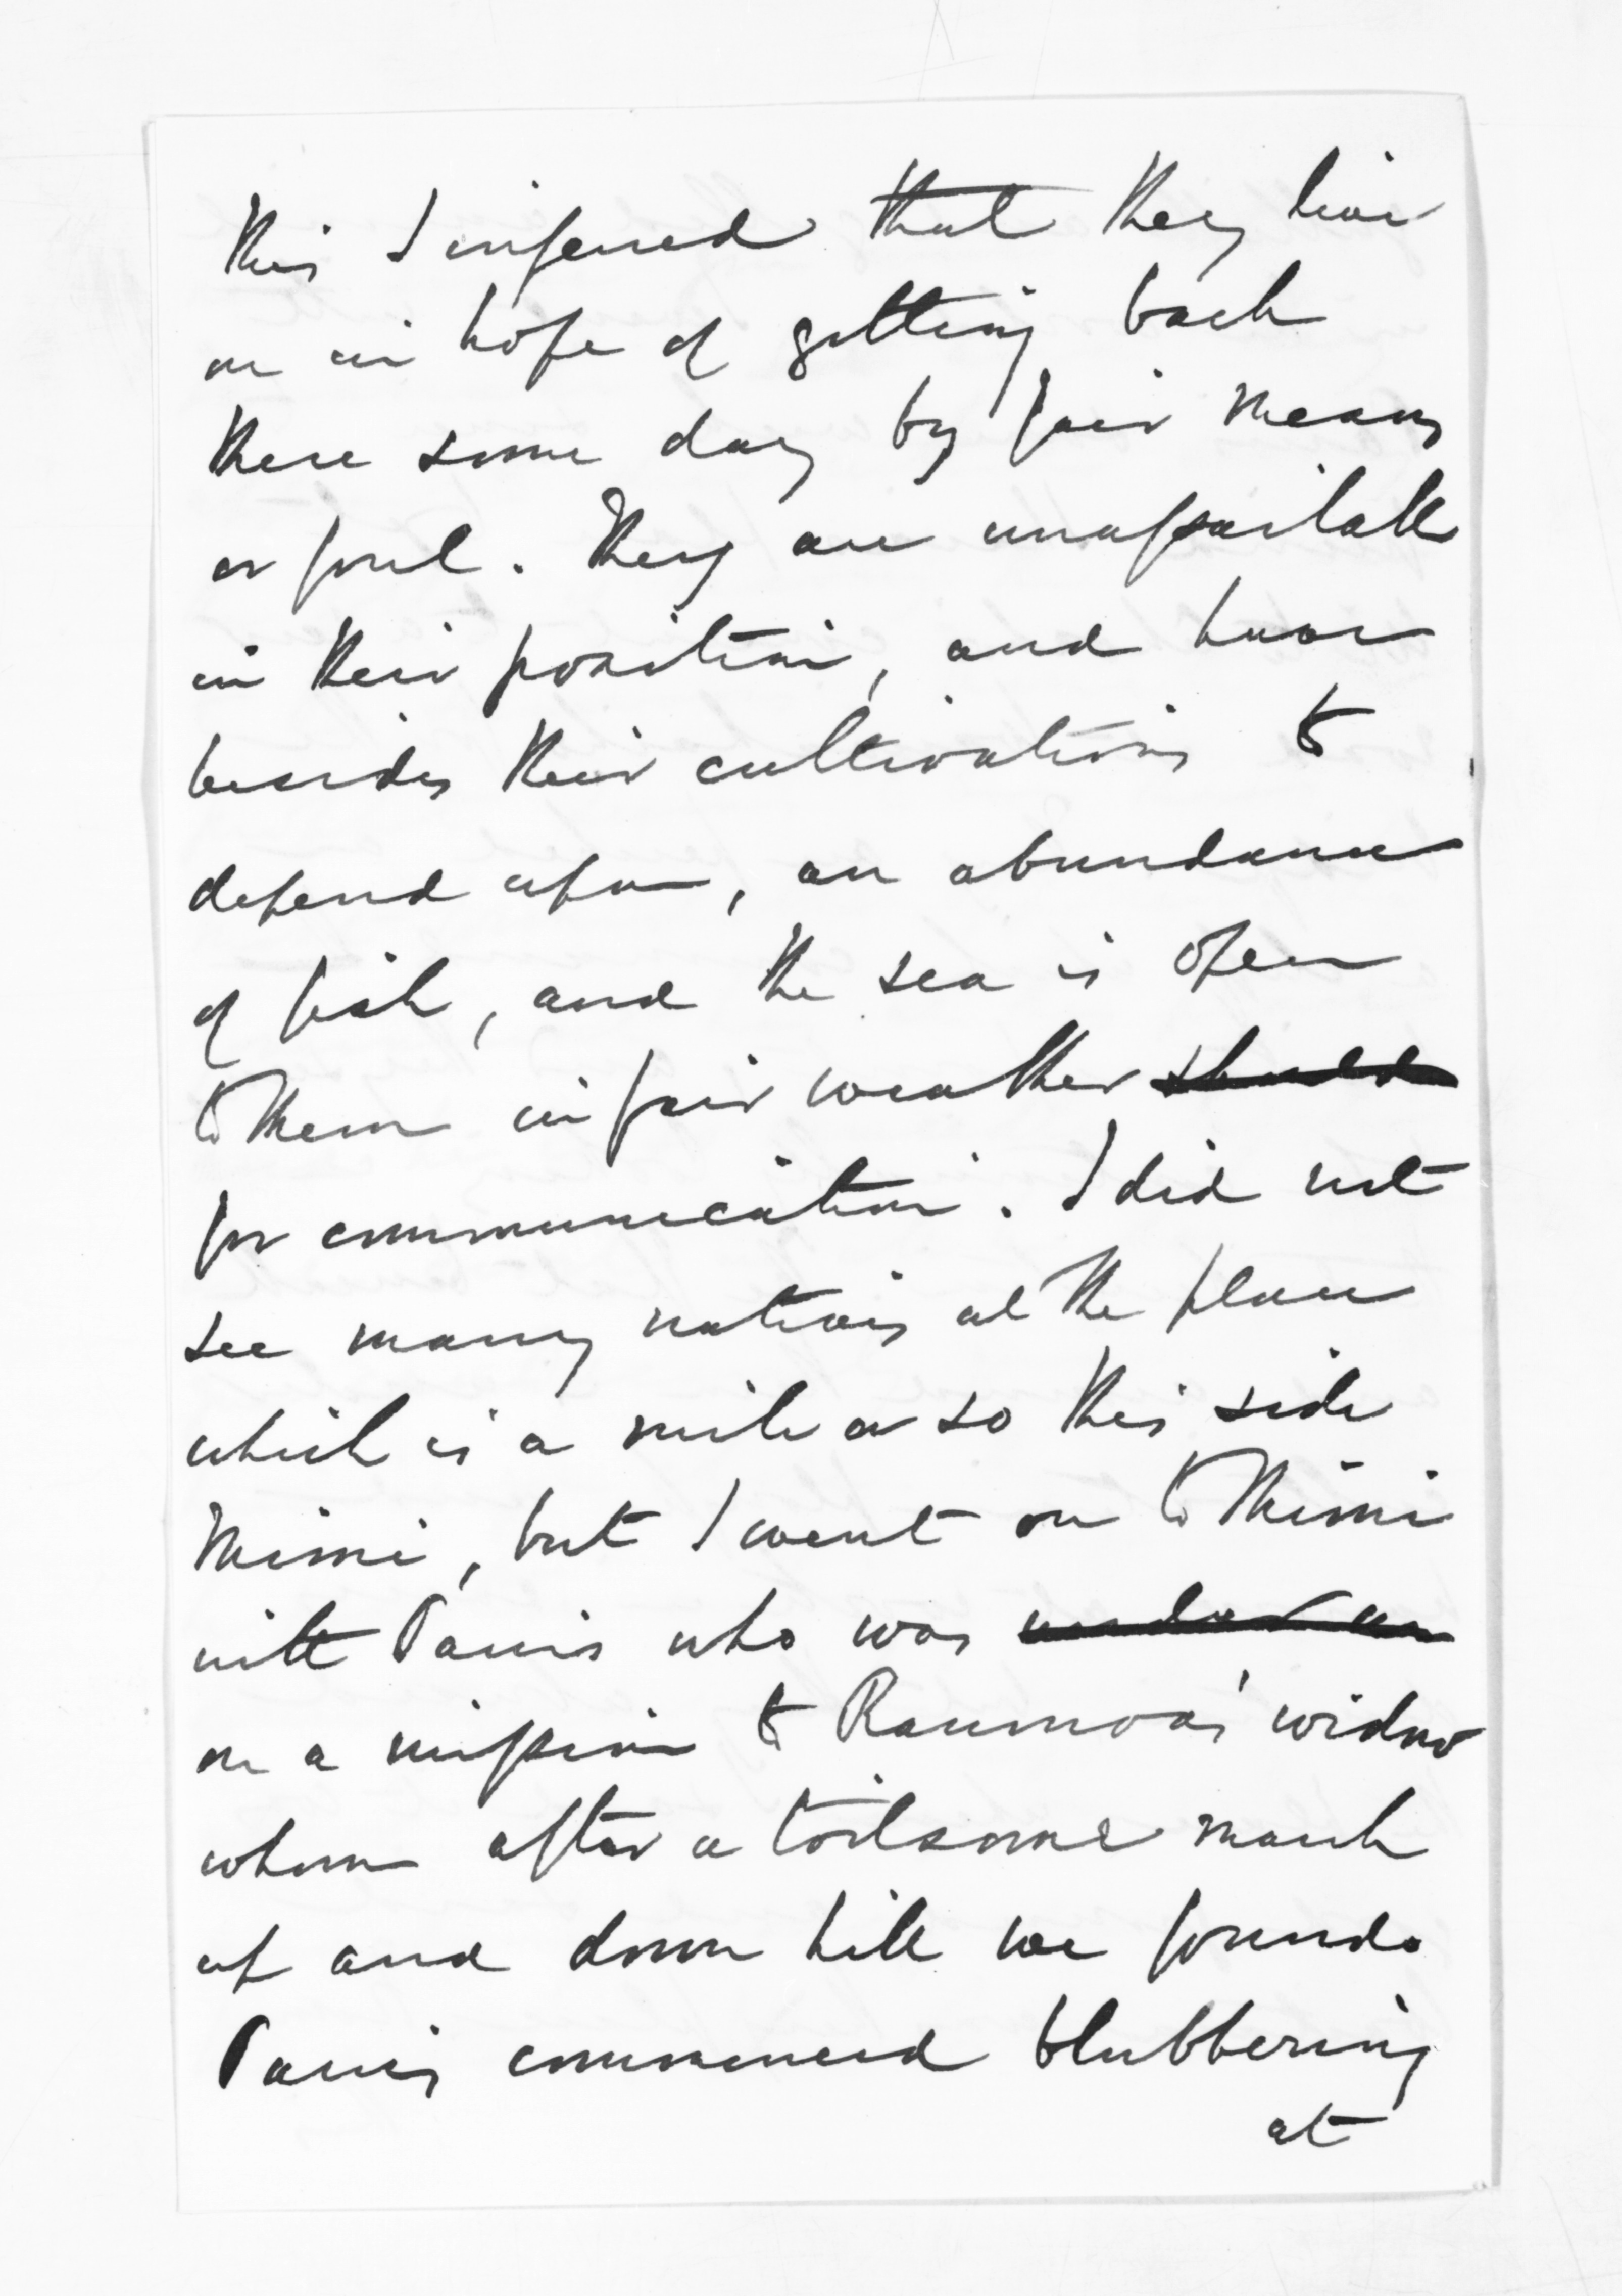 this I inferred that they live
on in hope of getting back
there some day by fair means
or foul. They are unassailable
in their position, and have
besides their cultivations to
depend upon, an abundance
of fish, and the sea is open
to them in fair weather should
for communication. I did not
see many natives at the place
which is a mile or so this side
Mimi, but I went on to Mimi
with Parris who was under an
on a mission to Raumoa's widow
whom after a toilsome march
up and down hill we found.
Parris commenced blubbering
at